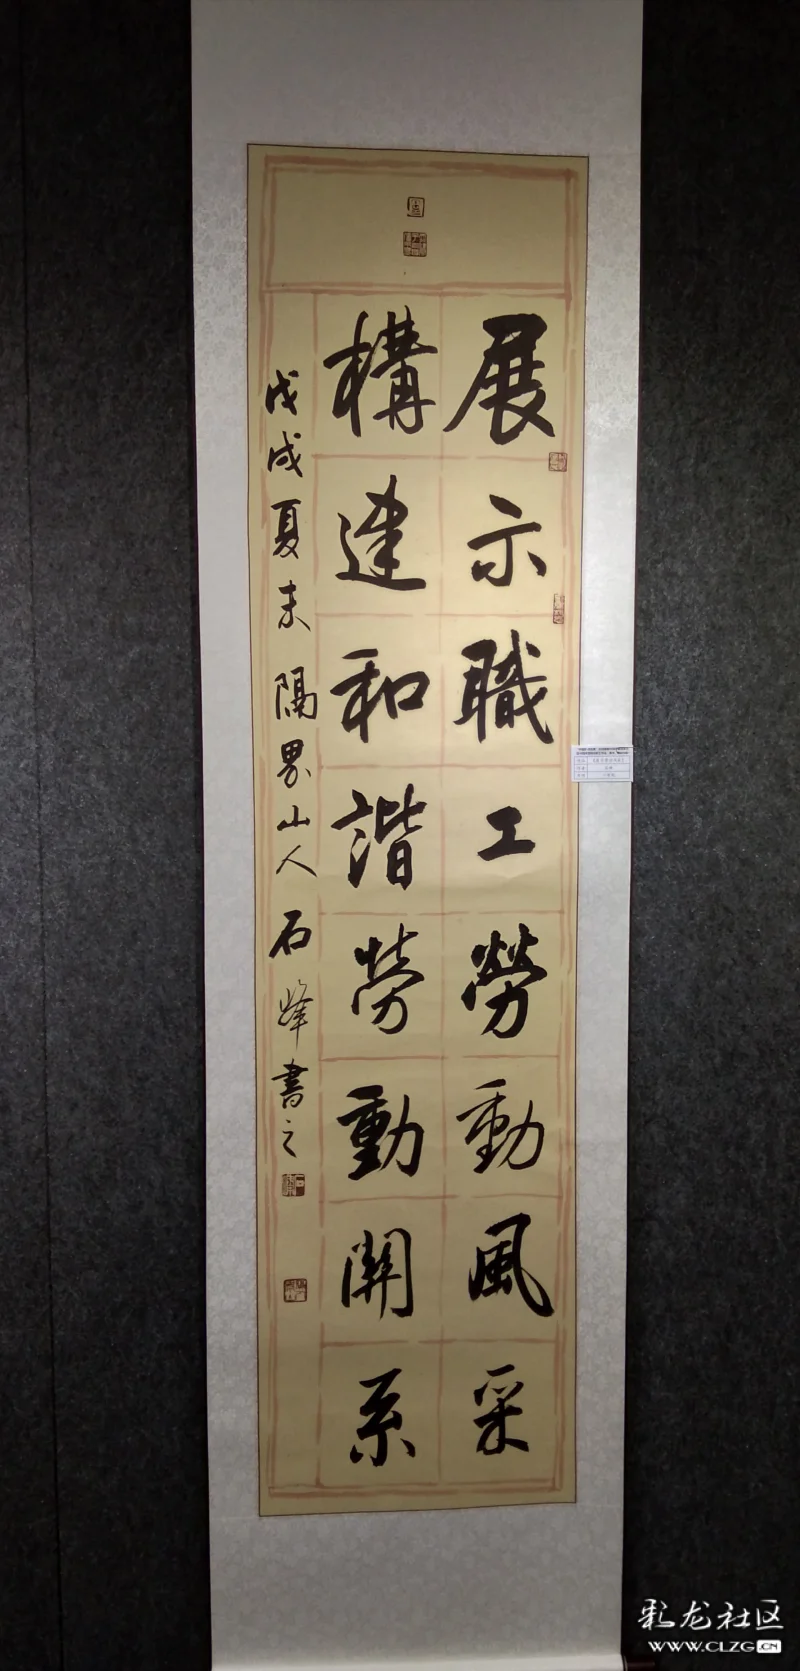 展示職工勞動風采
構建和諧勞動關系
戊戌夏末 隔界山人 石峰書之
彩龙社区
WWW.CLZG.CN